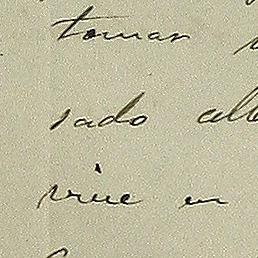 tomar
sado
vine en